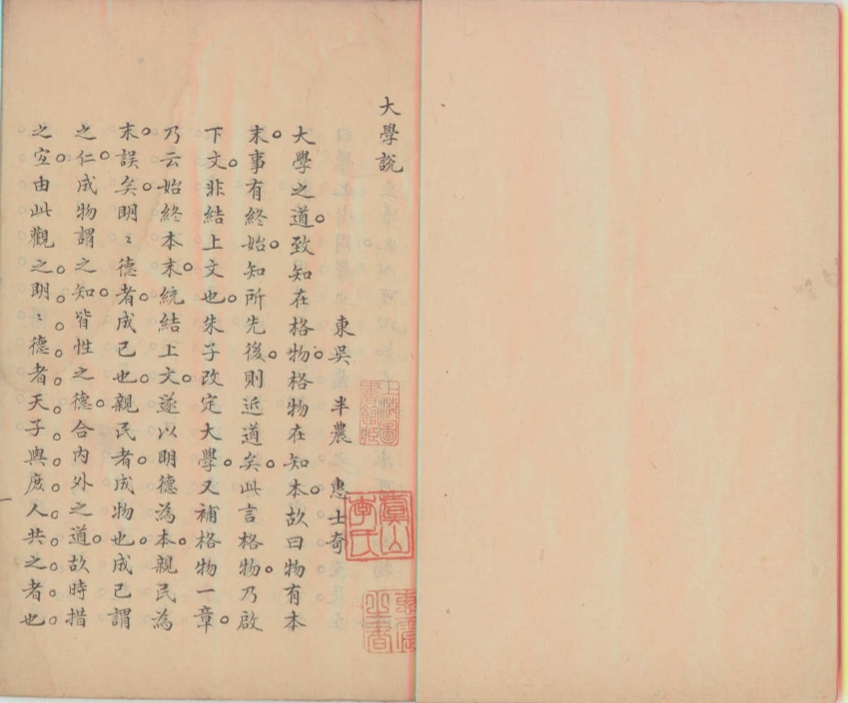 大學說
東吳 半農 惠士奇
大學之道致知在格物格物在知本故曰物有本
末事有終始知所先後則近道矣此言格物乃啟
下文非結上文也朱子改定大學又補格物一章
乃云始終本末統結上文遂以明德為本親民為
末誤矣明〻德者成己也親民者成物也成己謂
之仁成物謂之知皆性之德合內外之道故時措
之宐由此觀之明〻德者天子與庻人共之者也
上海圖書館藏
虞山李氏